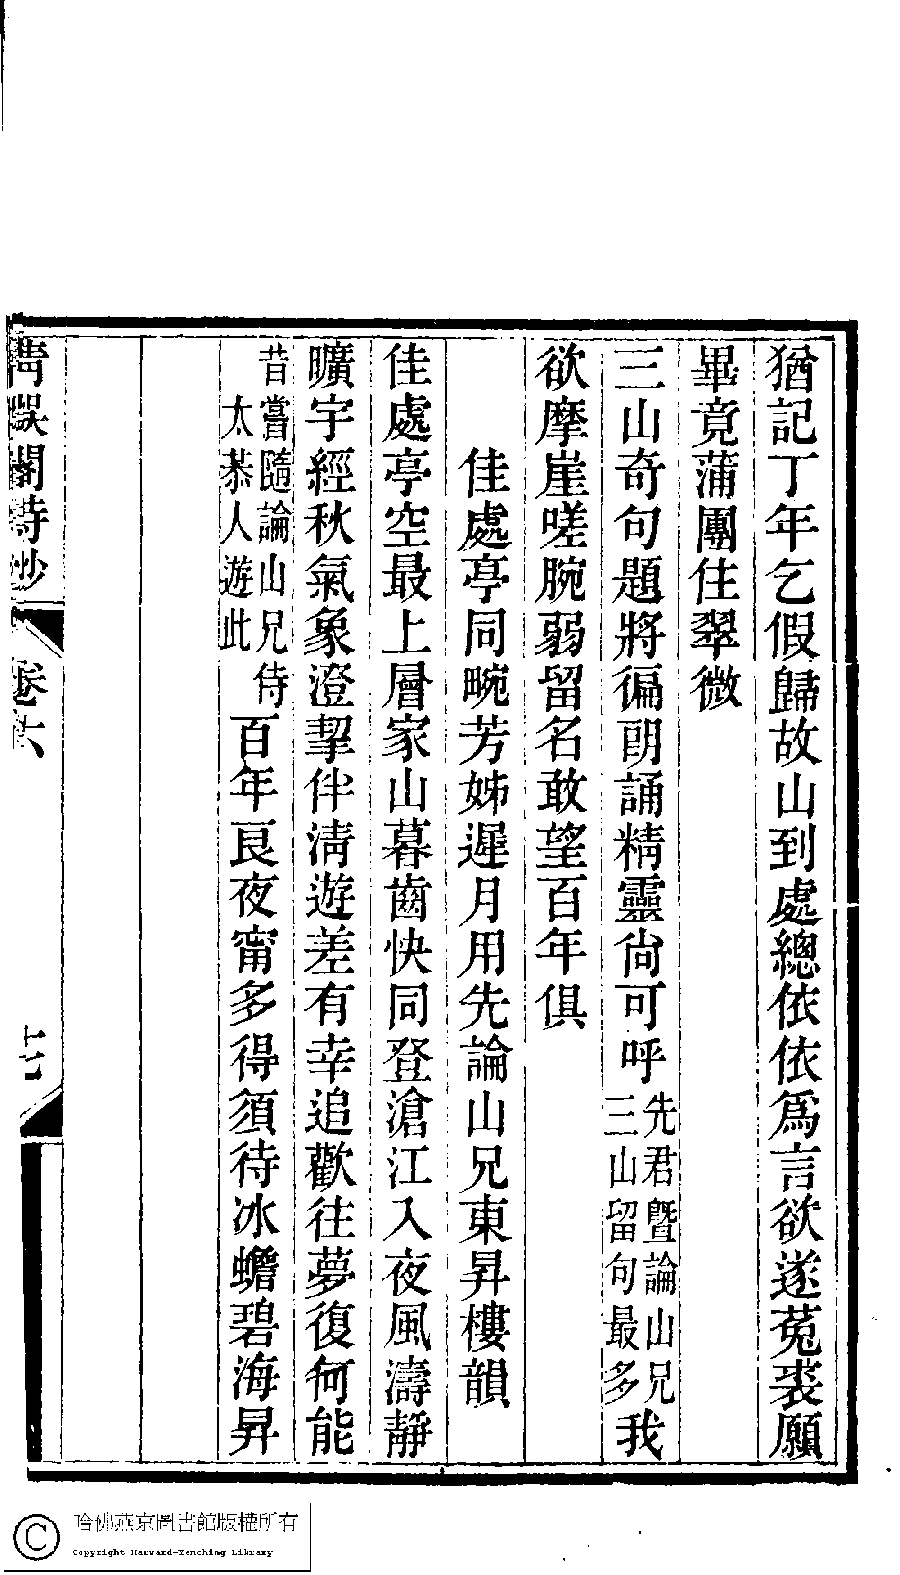 猶記丁年乞假歸故山到處總依依爲言欲遂菟裘願
畢竟蒲團住翠微
三山奇句題將徧朗誦精靈尙可呼先君曁論山兄三山留句最多我
欲摩崖嗟腕弱留名敢望百年俱
佳處亭同畹芳姊遲月用先論山兄東昇樓韻
佳處亭空最上層家山暮齒快同登滄江入夜風濤靜
曠宇經秋氣象澄挈伴淸遊差有幸追歡往夢復何能
昔嘗隨論山兄侍太恭人遊此百年良夜甯多得須待冰蟾碧海昇
閣詩鈔
卷六
十七
哈佛燕京圖書館版權所有
Copyright Harvard-Yenching Library